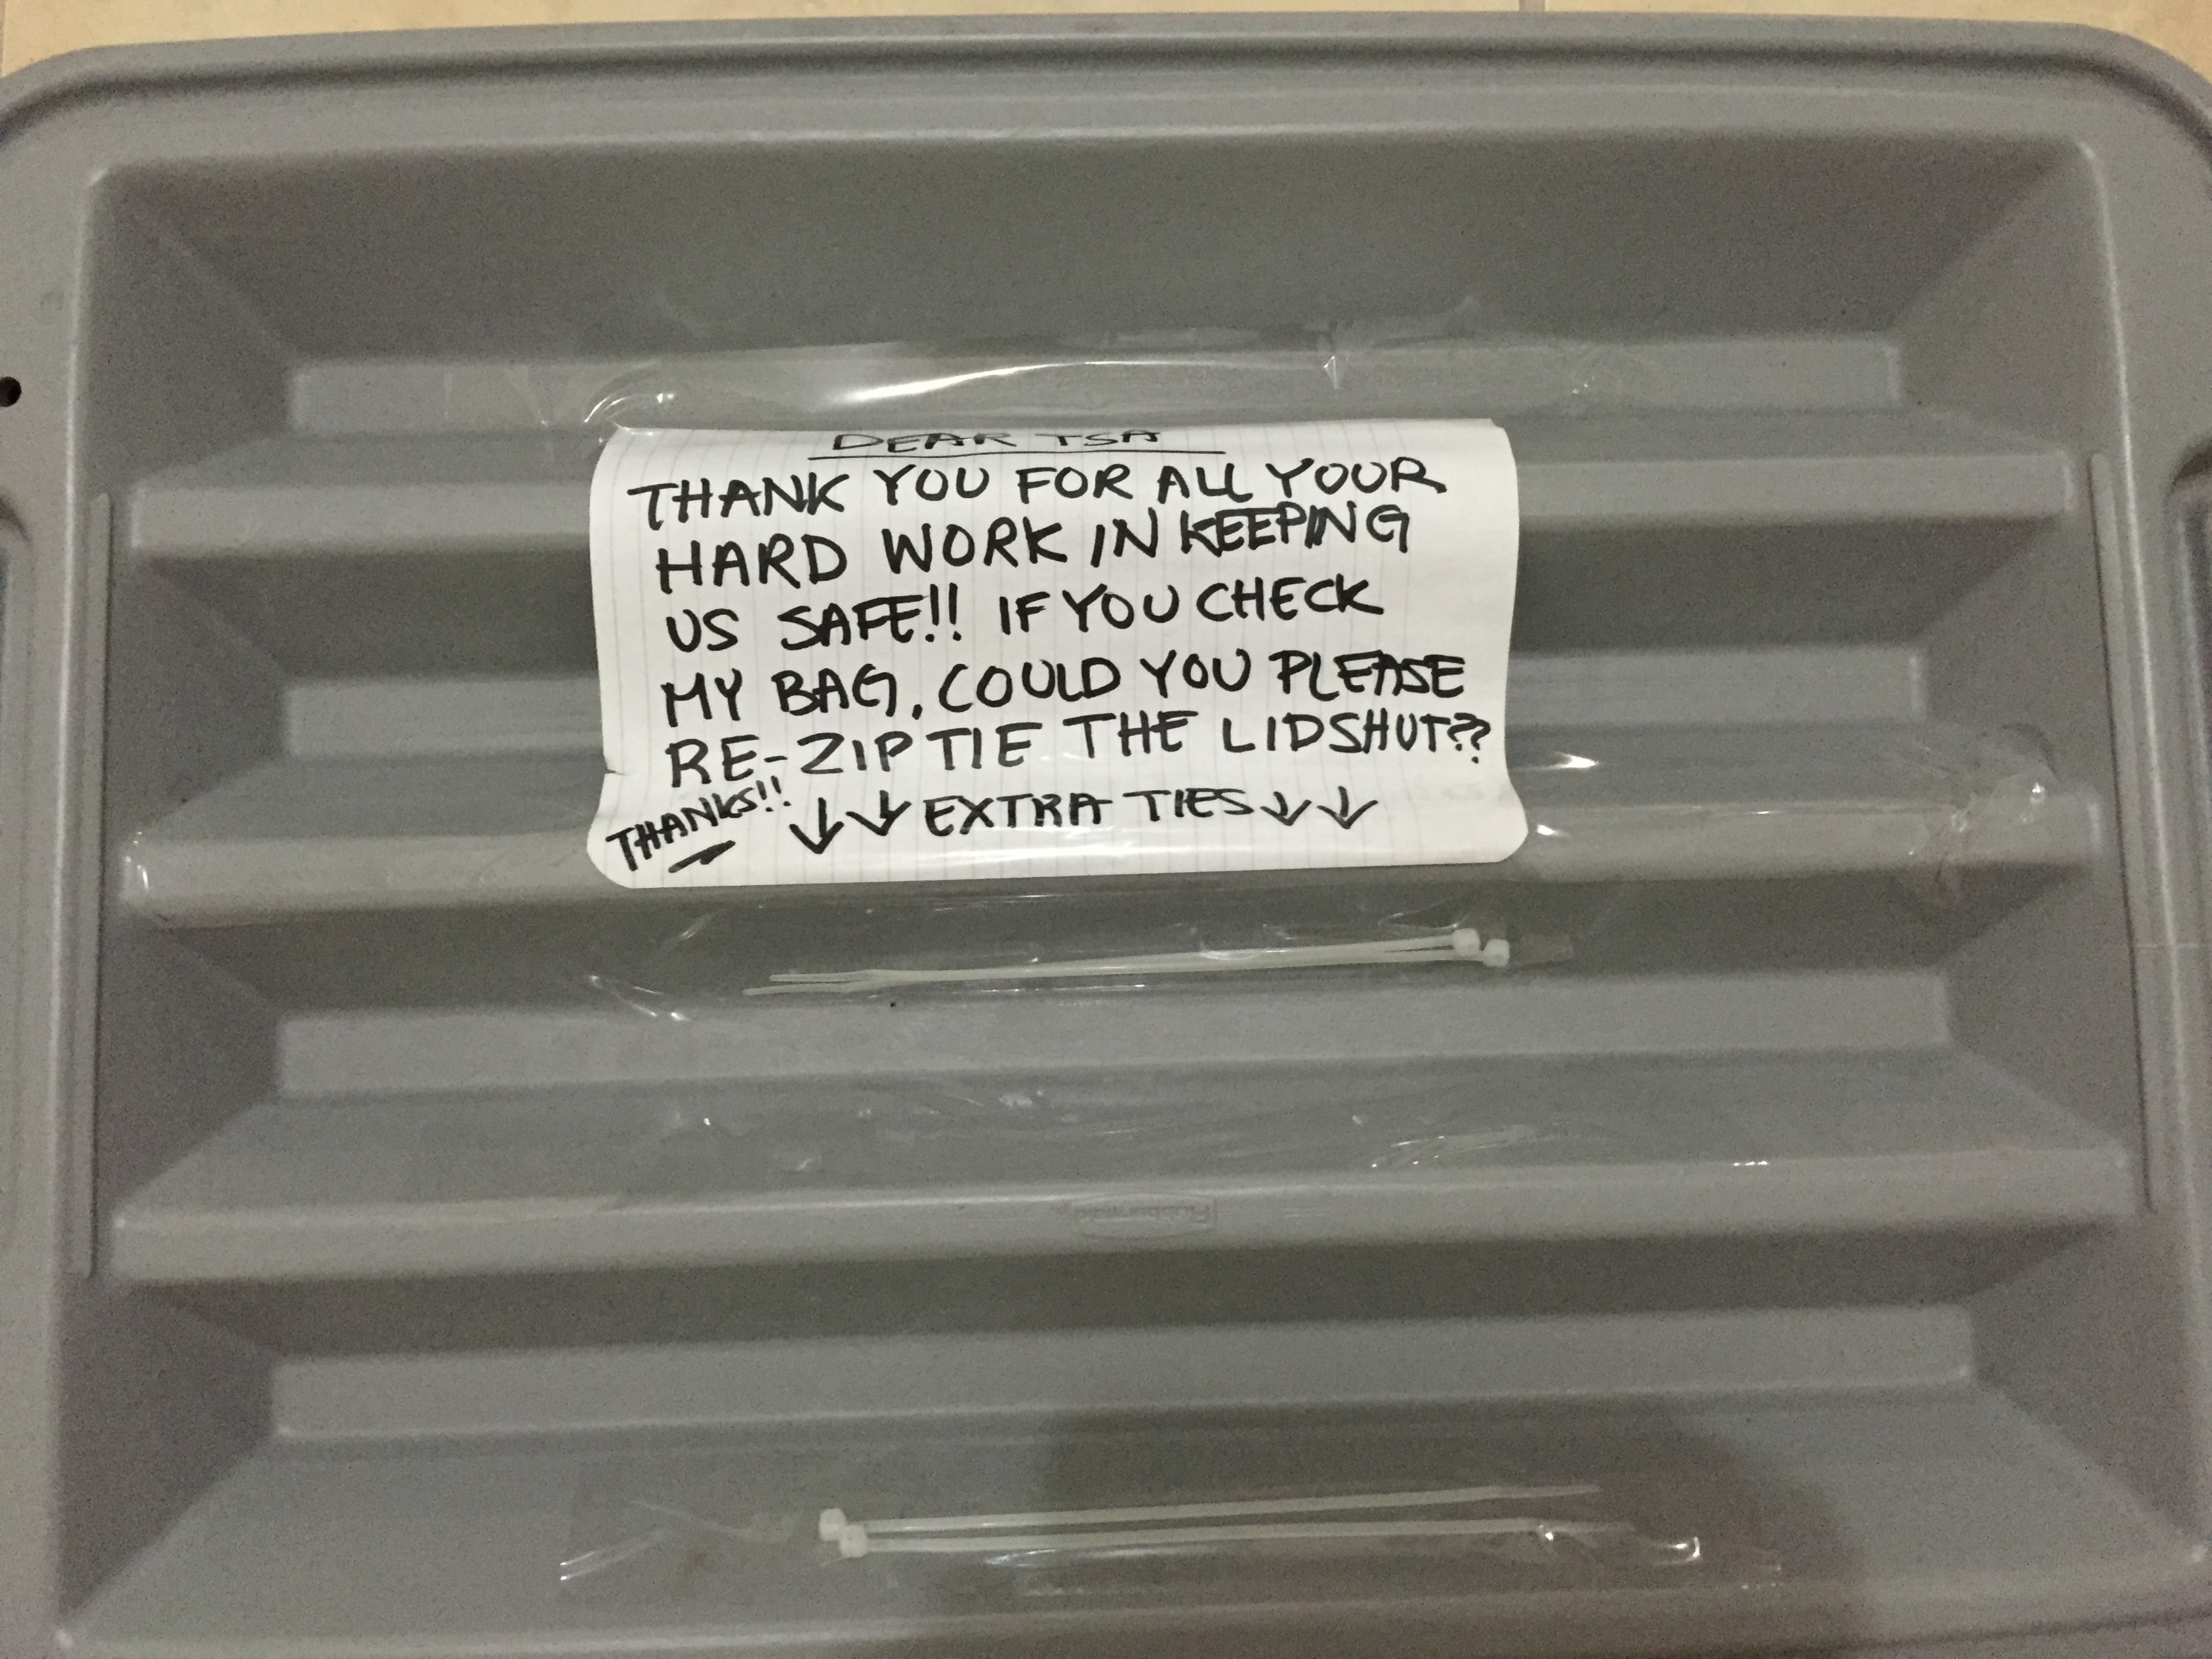 DEAR TSA
THANK YOU FOR ALL YOUR
HARD WORK IN KEEPING
US SAFE!! IF YOU CHECK
MY BAG, COULD YOU PLEASE
RE-ZIP TIE THE LID SHUT??
THANKS!! ↓↓ EXTRA TIES ↓↓
Rubbermaid